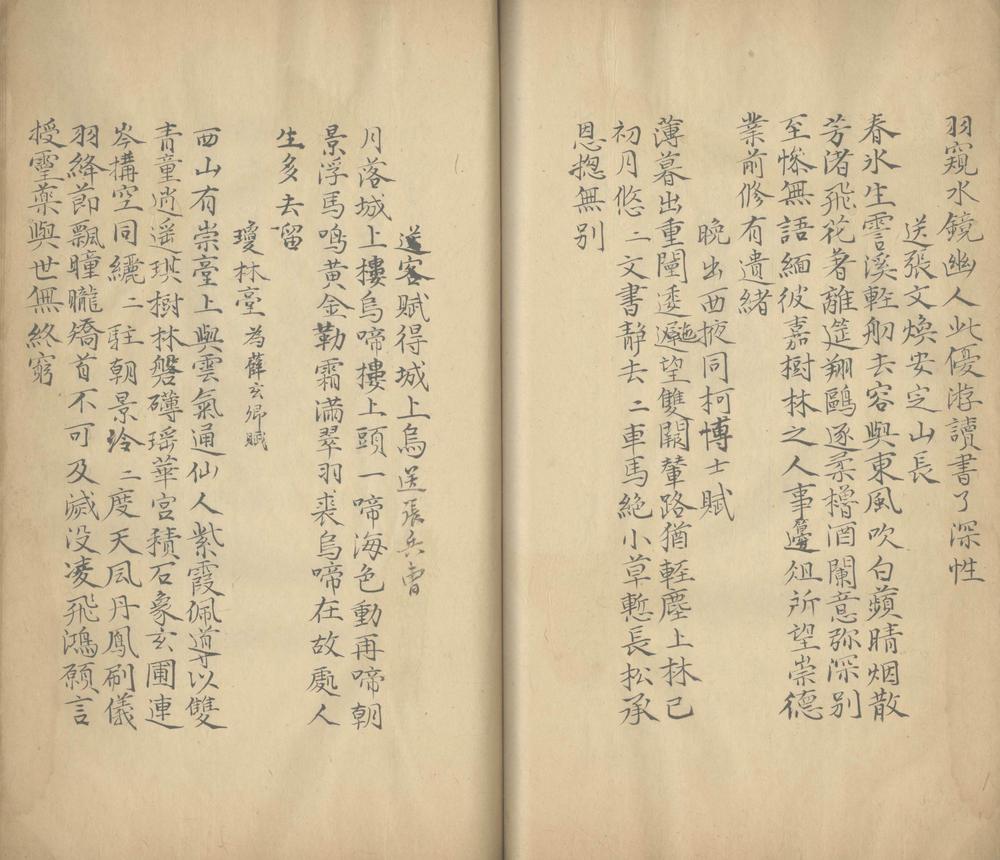 羽窺水鏡幽人此優游讀書了深性
送張文煥安定山長
春水生雪溪輕舠去容與東風吹白蘋晴烟散
芳渚飛花著離筵翔鷗逐柔櫓酒闌意弥深别
至惨無語緬彼嘉樹林之人事邊俎所望崇德
業前修有遺緒
晚出西掖同柯博士賦
薄暮出重闉逶迤望雙闕輦路猶輕塵上林已
初月悠二文書静去二車馬絶小草慙長松承
恩揔無别
送客賦得城上烏送張兵曹
月落城上樓烏啼樓上頭一啼海色動再啼朝
景浮馬鳴黄金勒霜滿翠羽裘烏啼在故處人
生多去留
瓊林臺為薛玄卿賦
西山有崇臺上與雲氣通仙人紫霞佩導以雙
青童逍遥琪樹林磐礴瑶華宫積石象玄圃連
岑構空同纚二駐朝景泠二度天風丹鳳刷儀
羽絳節飄曈曨矯首不可及滅没凌飛鴻願言
授靈藥與世無終窮